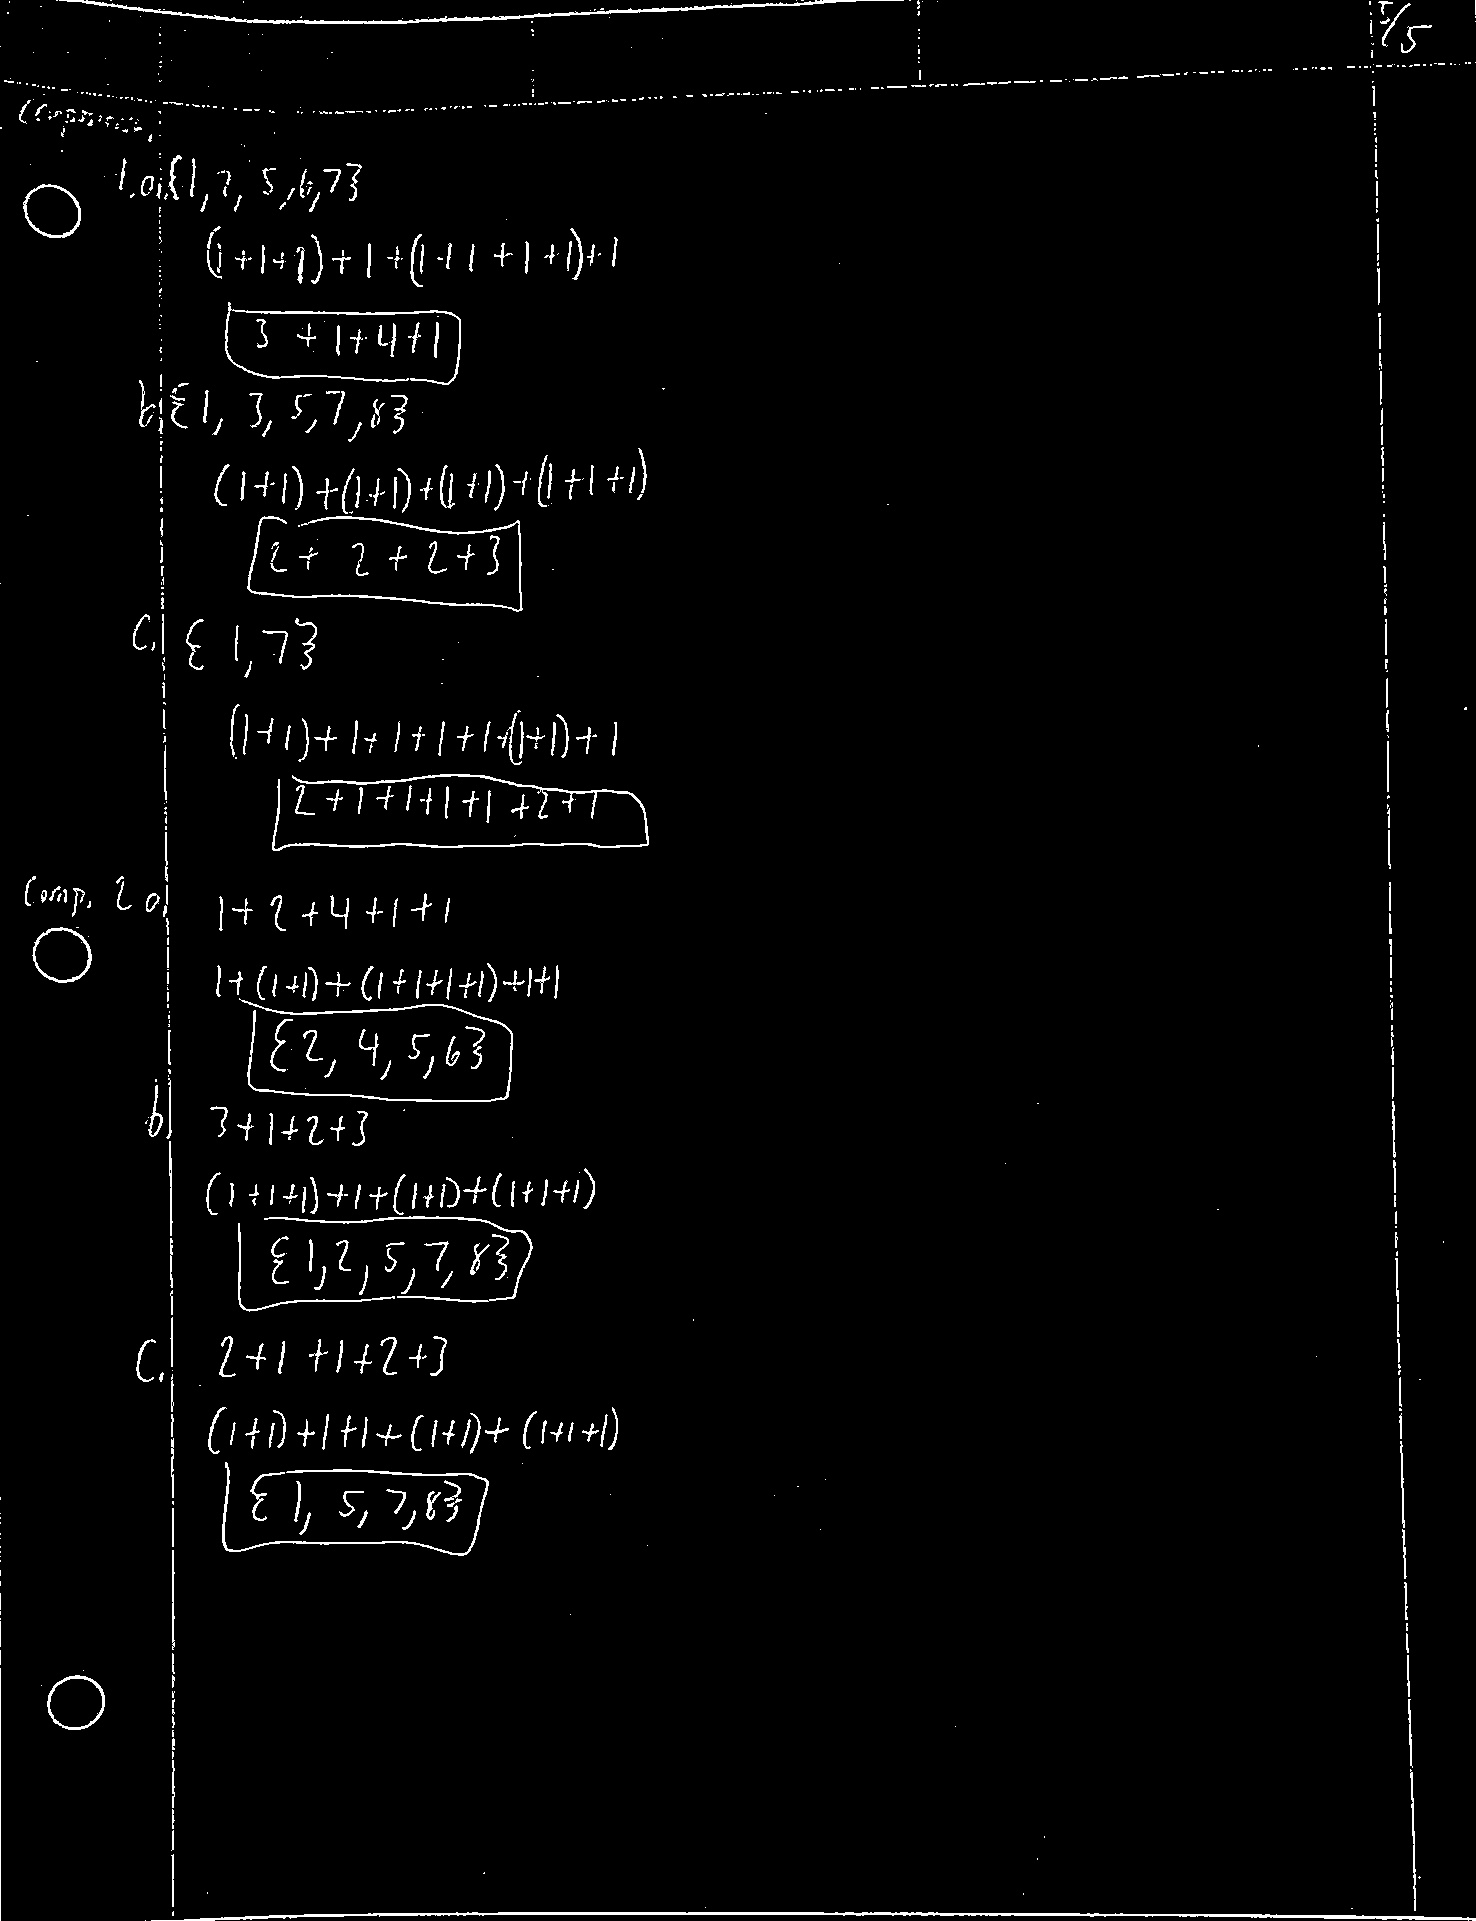 5/5
Compositions
1.a. {1, 2, 5, 6, 7}
(1+1+1)+1+(1+1+1+1)+1
3 + 1+4+1
b. {1, 3, 5, 7, 8}
(1+1)+(1+1)+(1+1)+(1+1+1)
2+ 2+2+3
c. { 1, 7}
(1+1)+1+1+1+1+(1+1)+1
2+1+1+1+1+2+1
Comp. 2 a.
1+2+4+1+1
1+(1+1)+(1+1+1+1)+1+1
{2, 4, 5, 6}
b. 3+1+2+3
(1+1+1)+1+(1+1)+(1+1+1)
{1, 2, 5, 7, 8}
c. 2+1+1+2+3
(1+1)+1+1+(1+1)+(1+1+1)
{1, 5, 7, 8}